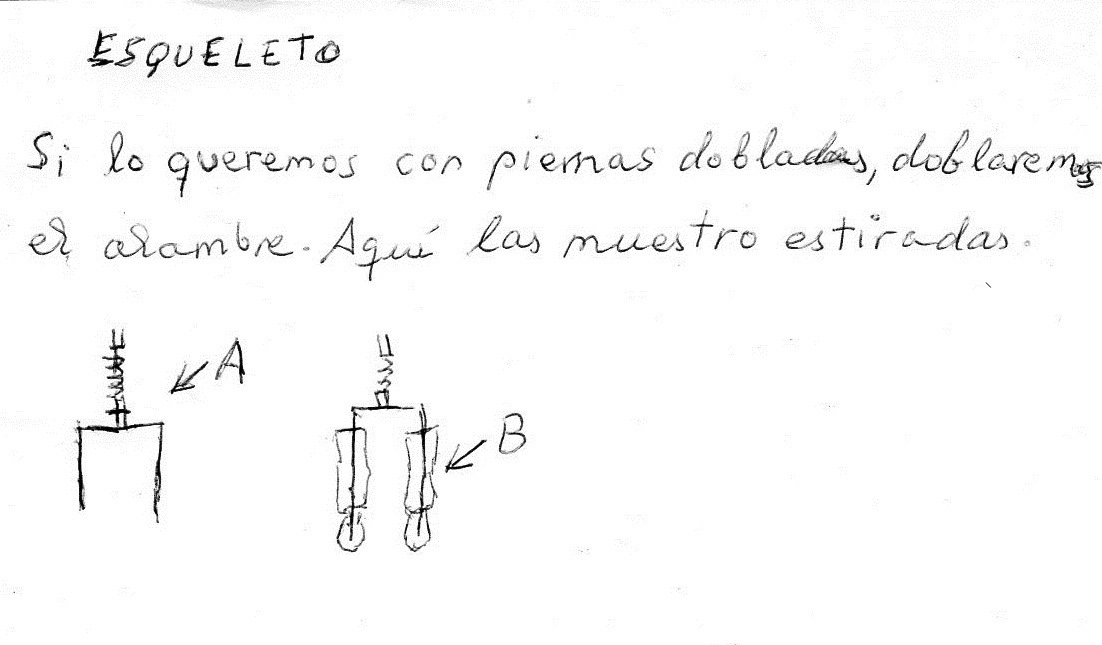 ESQUELETO
Si lo queremos con piernas dobladas, doblaremos
el alambre. Aquí las muestro estiradas.
A
B